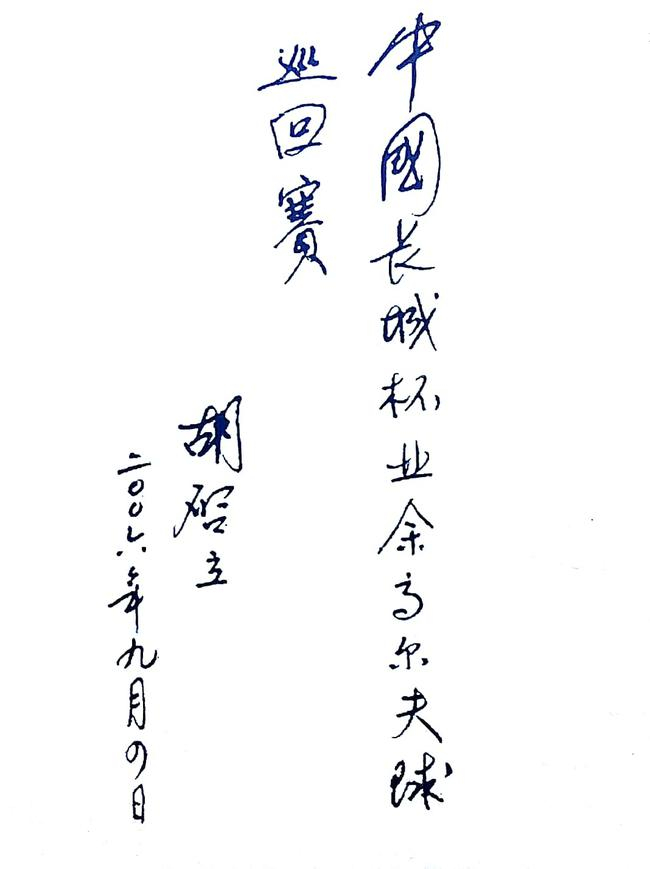 中國长城杯业余高尔夫球
巡回賽
胡啓立
二〇〇六年九月四日